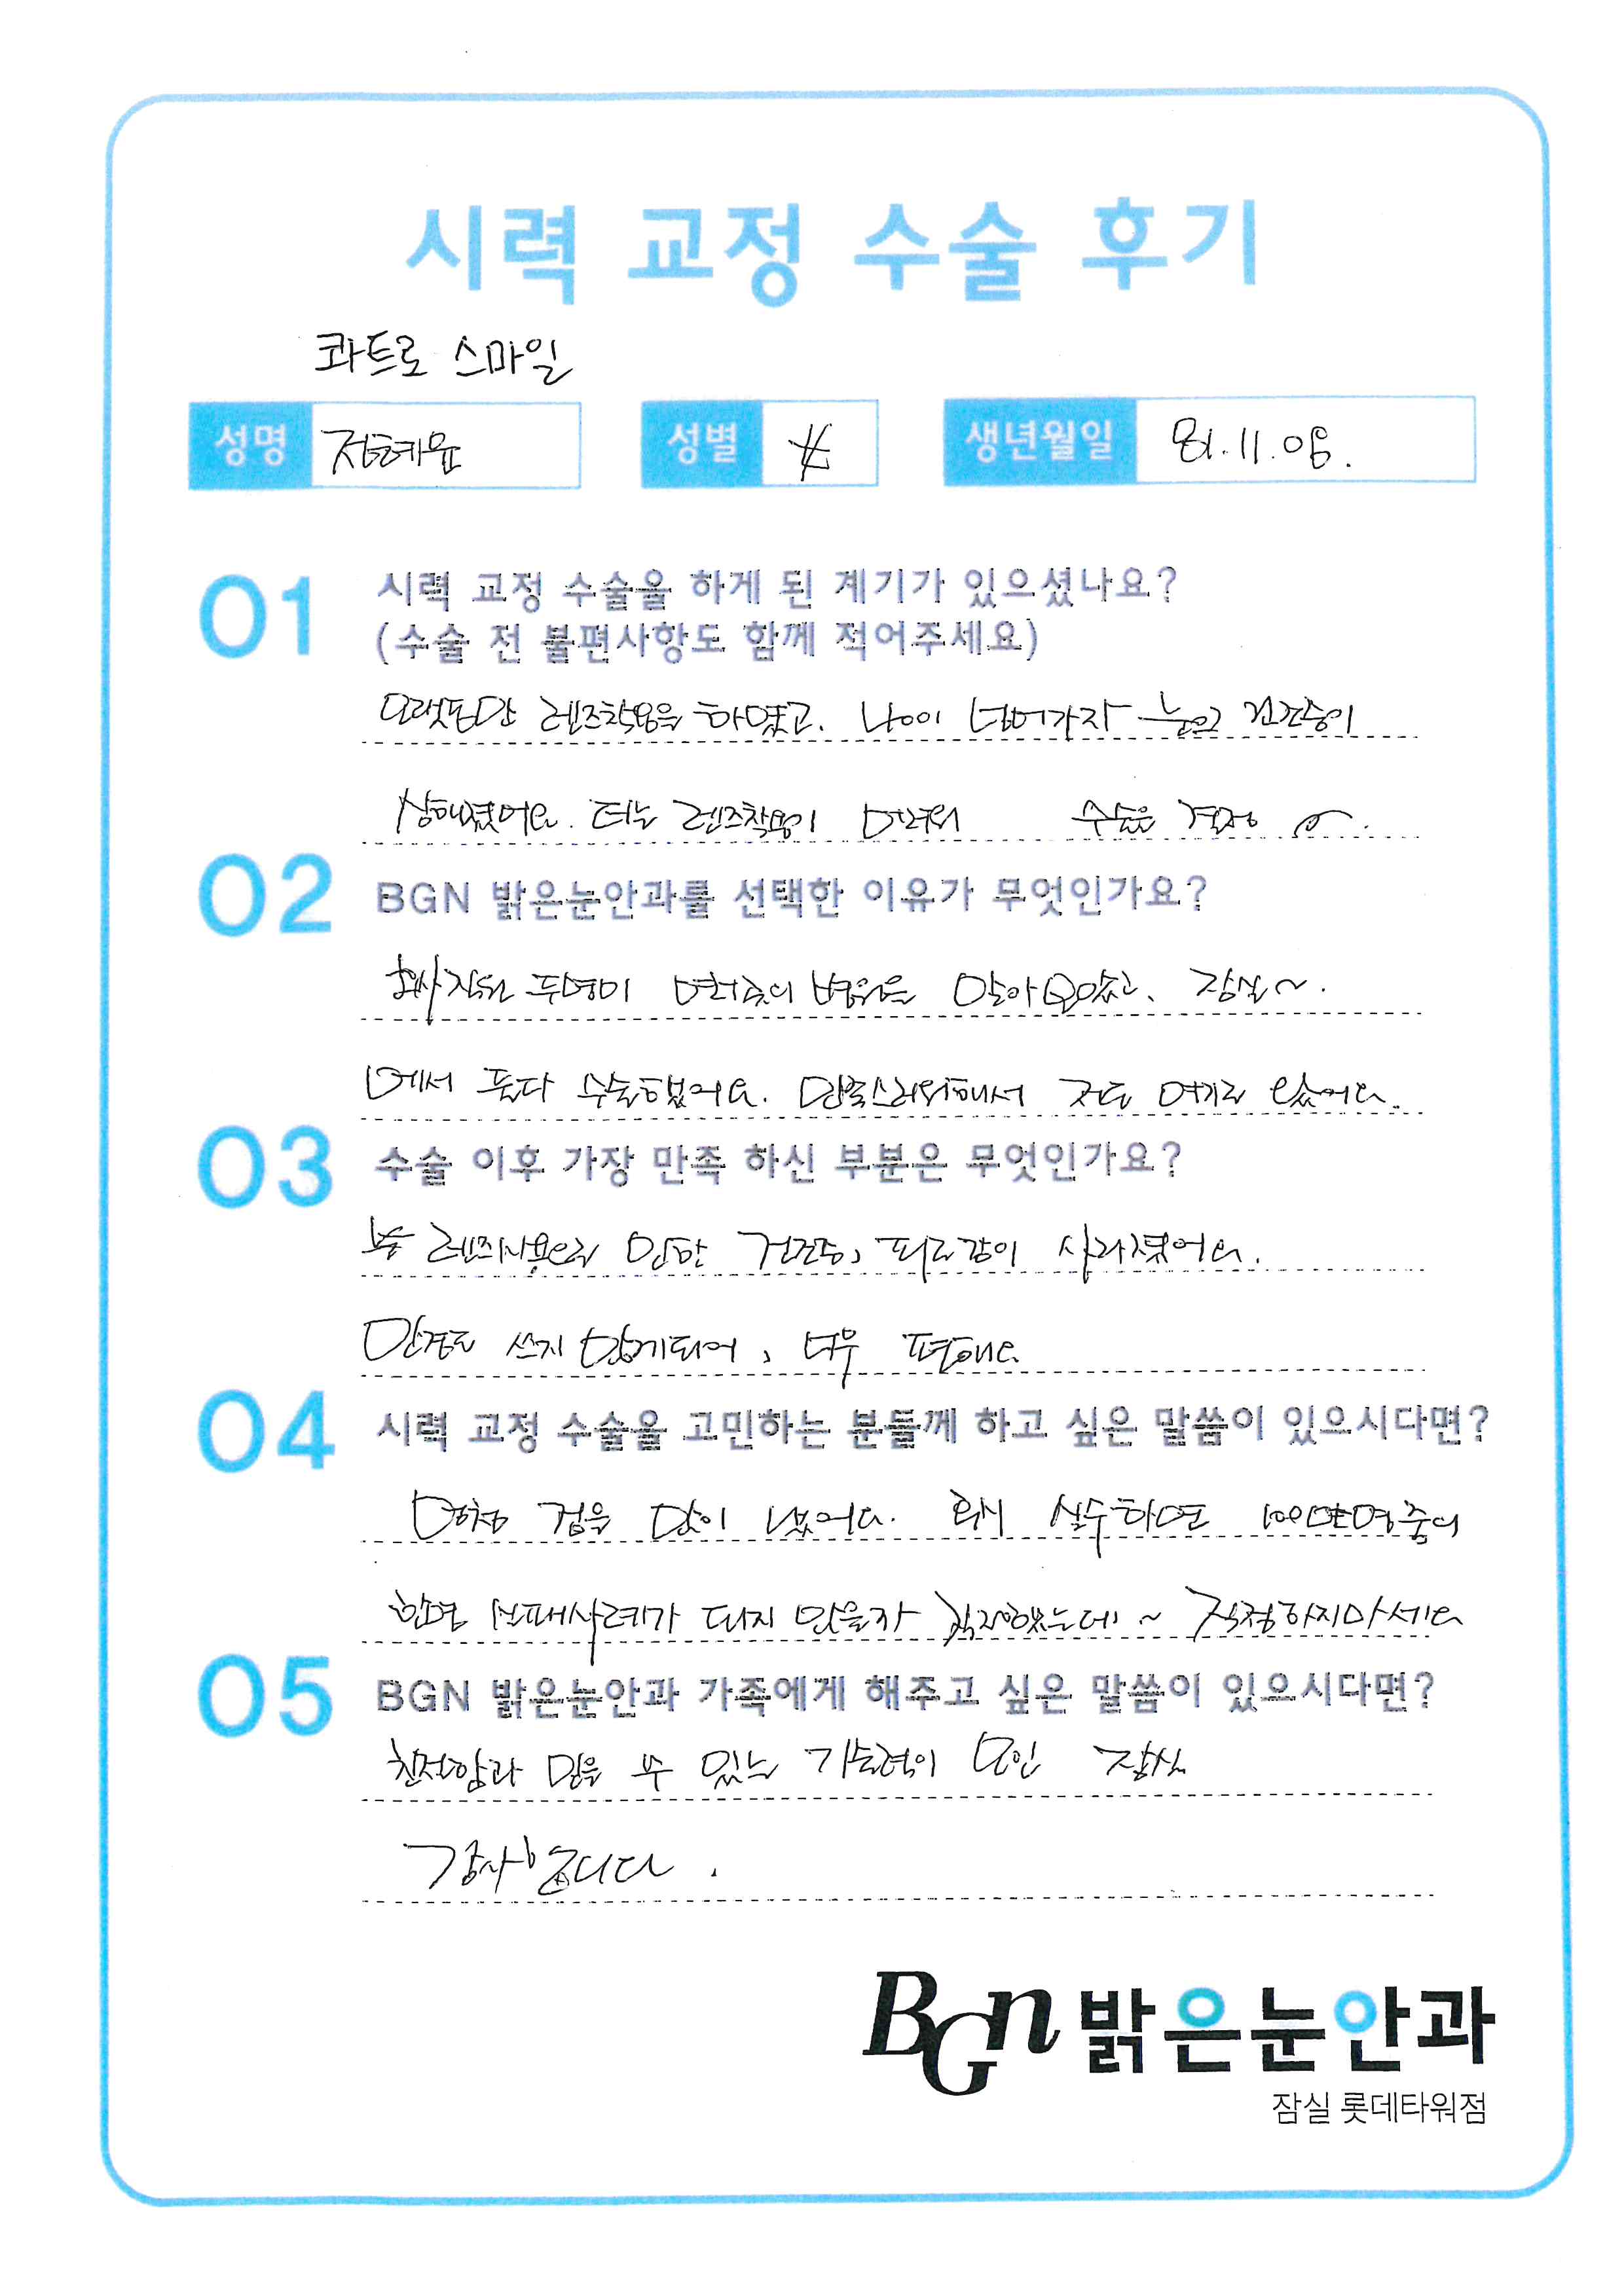 시력 교정 수술 후기
콰트로 스마일
성명 성별 생년월일 81.11.06.
01 시력 교정 수술을 하게 된 계기가 있으셨나요?
(수술 전 불편사항도 함께 적어주세요)
오랫동안 렌즈착용을 하였고. 나이 넘어가자 눈의 건조증이
심해졌어요. 더는 렌즈착용이 어려워 수술을 결정
02 BGN 밝은눈안과를 선택한 이유가 무엇인가요?
회사직원 두명이 먼저 병원을 알아보았고, 잠실~.
에서 둘다 수술했어요. 만족스러워해서 저도 여기로 왔어요.
03 수술 이후 가장 만족 하신 부분은 무엇인가요?
렌즈사용으로 인한 건조증, 피로감이 사라졌어요.
안경도 쓰지 않게되어, 너무 편해요
04 시력 교정 수술을 고민하는 분들께 하고 싶은 말씀이 있으시다면?
엄청 겁을 많이 냈어요. 혹시 실수하면 100만명중의
한명 실패사례가 되지 않을까 걱정했는데~ 걱정하지마세요
05 BGN 밝은눈안과 가족에게 해주고 싶은 말씀이 있으시다면?
친절함과 믿을 수 있는 기술력이 모인 잠실
감사합니다.
BGN 밝은눈안과
잠실 롯데타워점